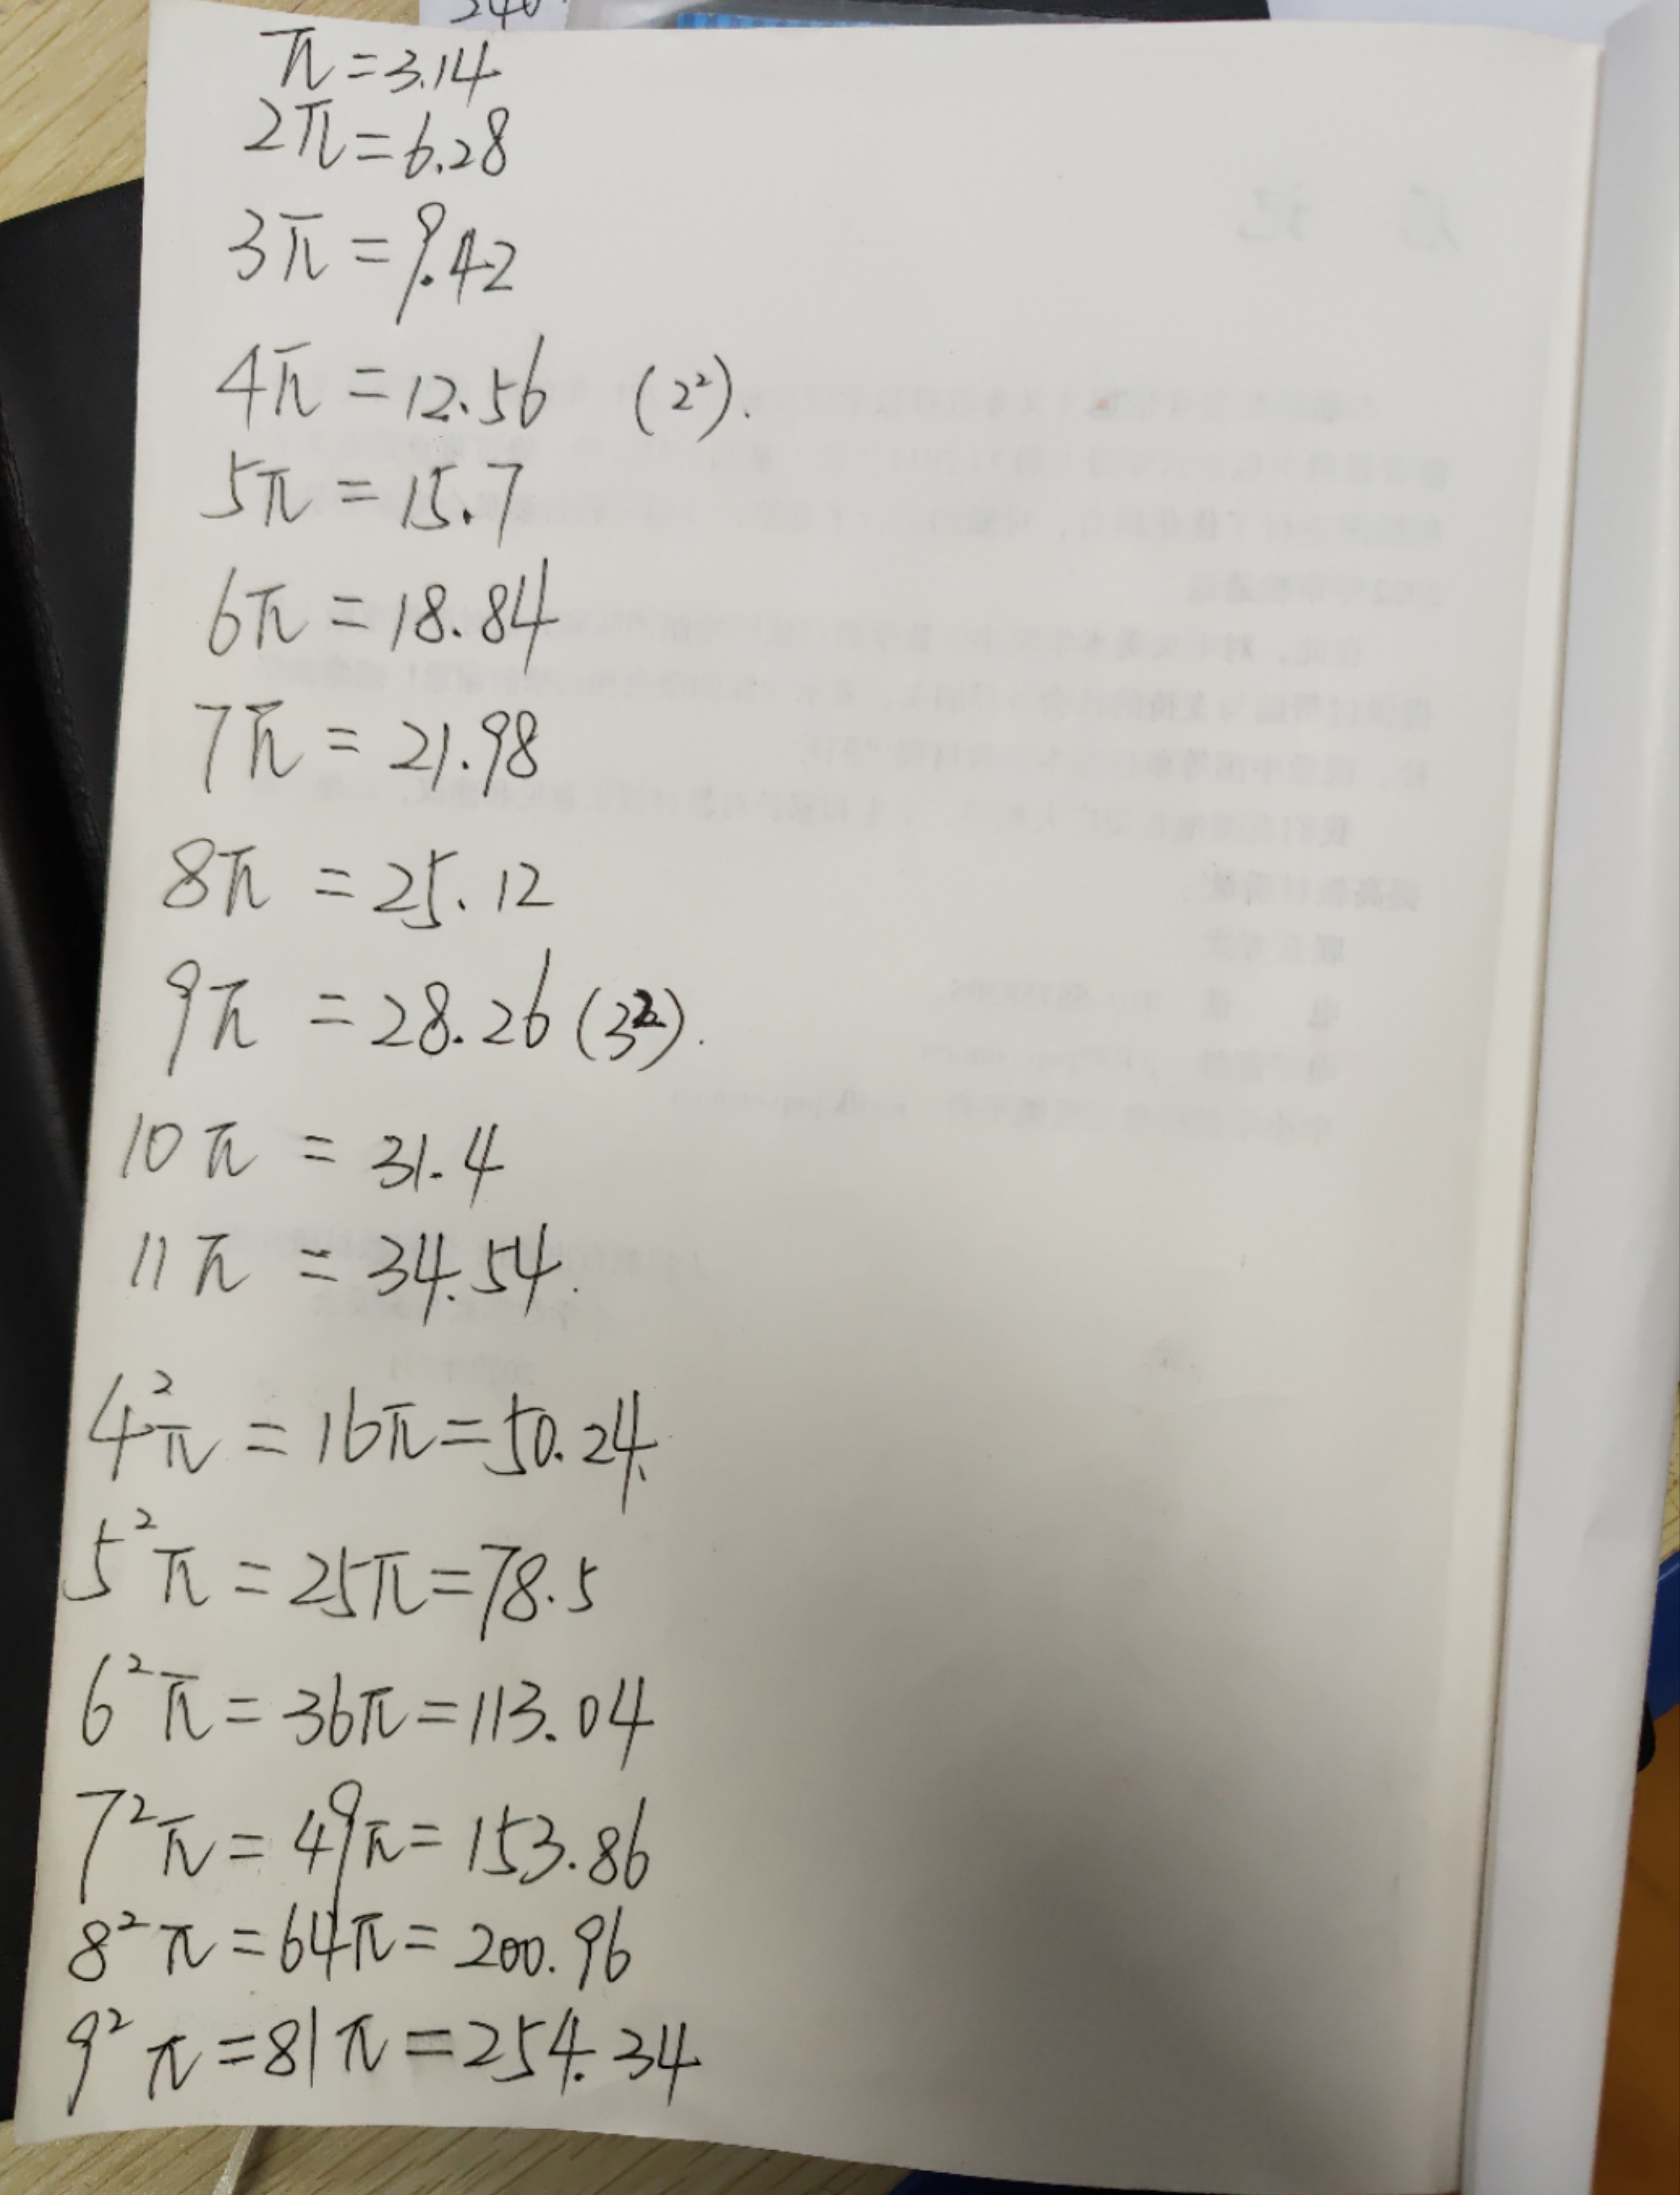 π=3.14
2π=6.28
3π=9.42
4π=12.56 (2²).
5π=15.7
6π=18.84
7π=21.98
8π=25.12
9π=28.26(3²).
10π=31.4
11π=34.54.
4²π=16π=50.24.
5²π=25π=78.5
6²π=36π=113.04
7²π=49π=153.86
8²π=64π=200.96
9²π=81π=254.34